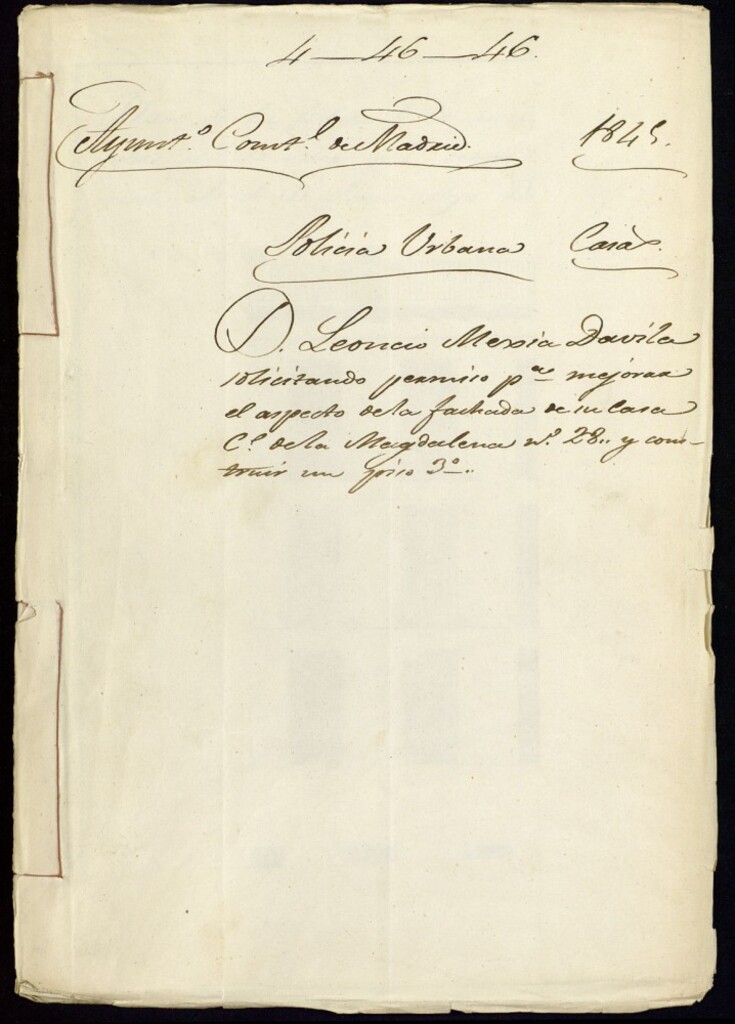 4-46-46.
Ayunt.º Const.l de Madrid. 1845.
Policia Urbana Casas.
D. Leoncio Mexia Davila
solicitando permiso p.a mejorar
el aspecto de la fachada de su casa
C.e de la Magdalena n.º 28.. y cons-
truir un piso 3.º..